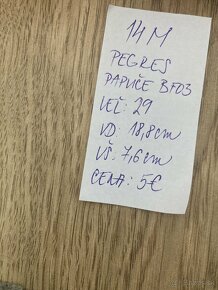 14M
PEGRES
PAPUČE BF03
VEĽ: 29
VD: 18,8cm
VŠ: 7,6cm
CENA: 5€